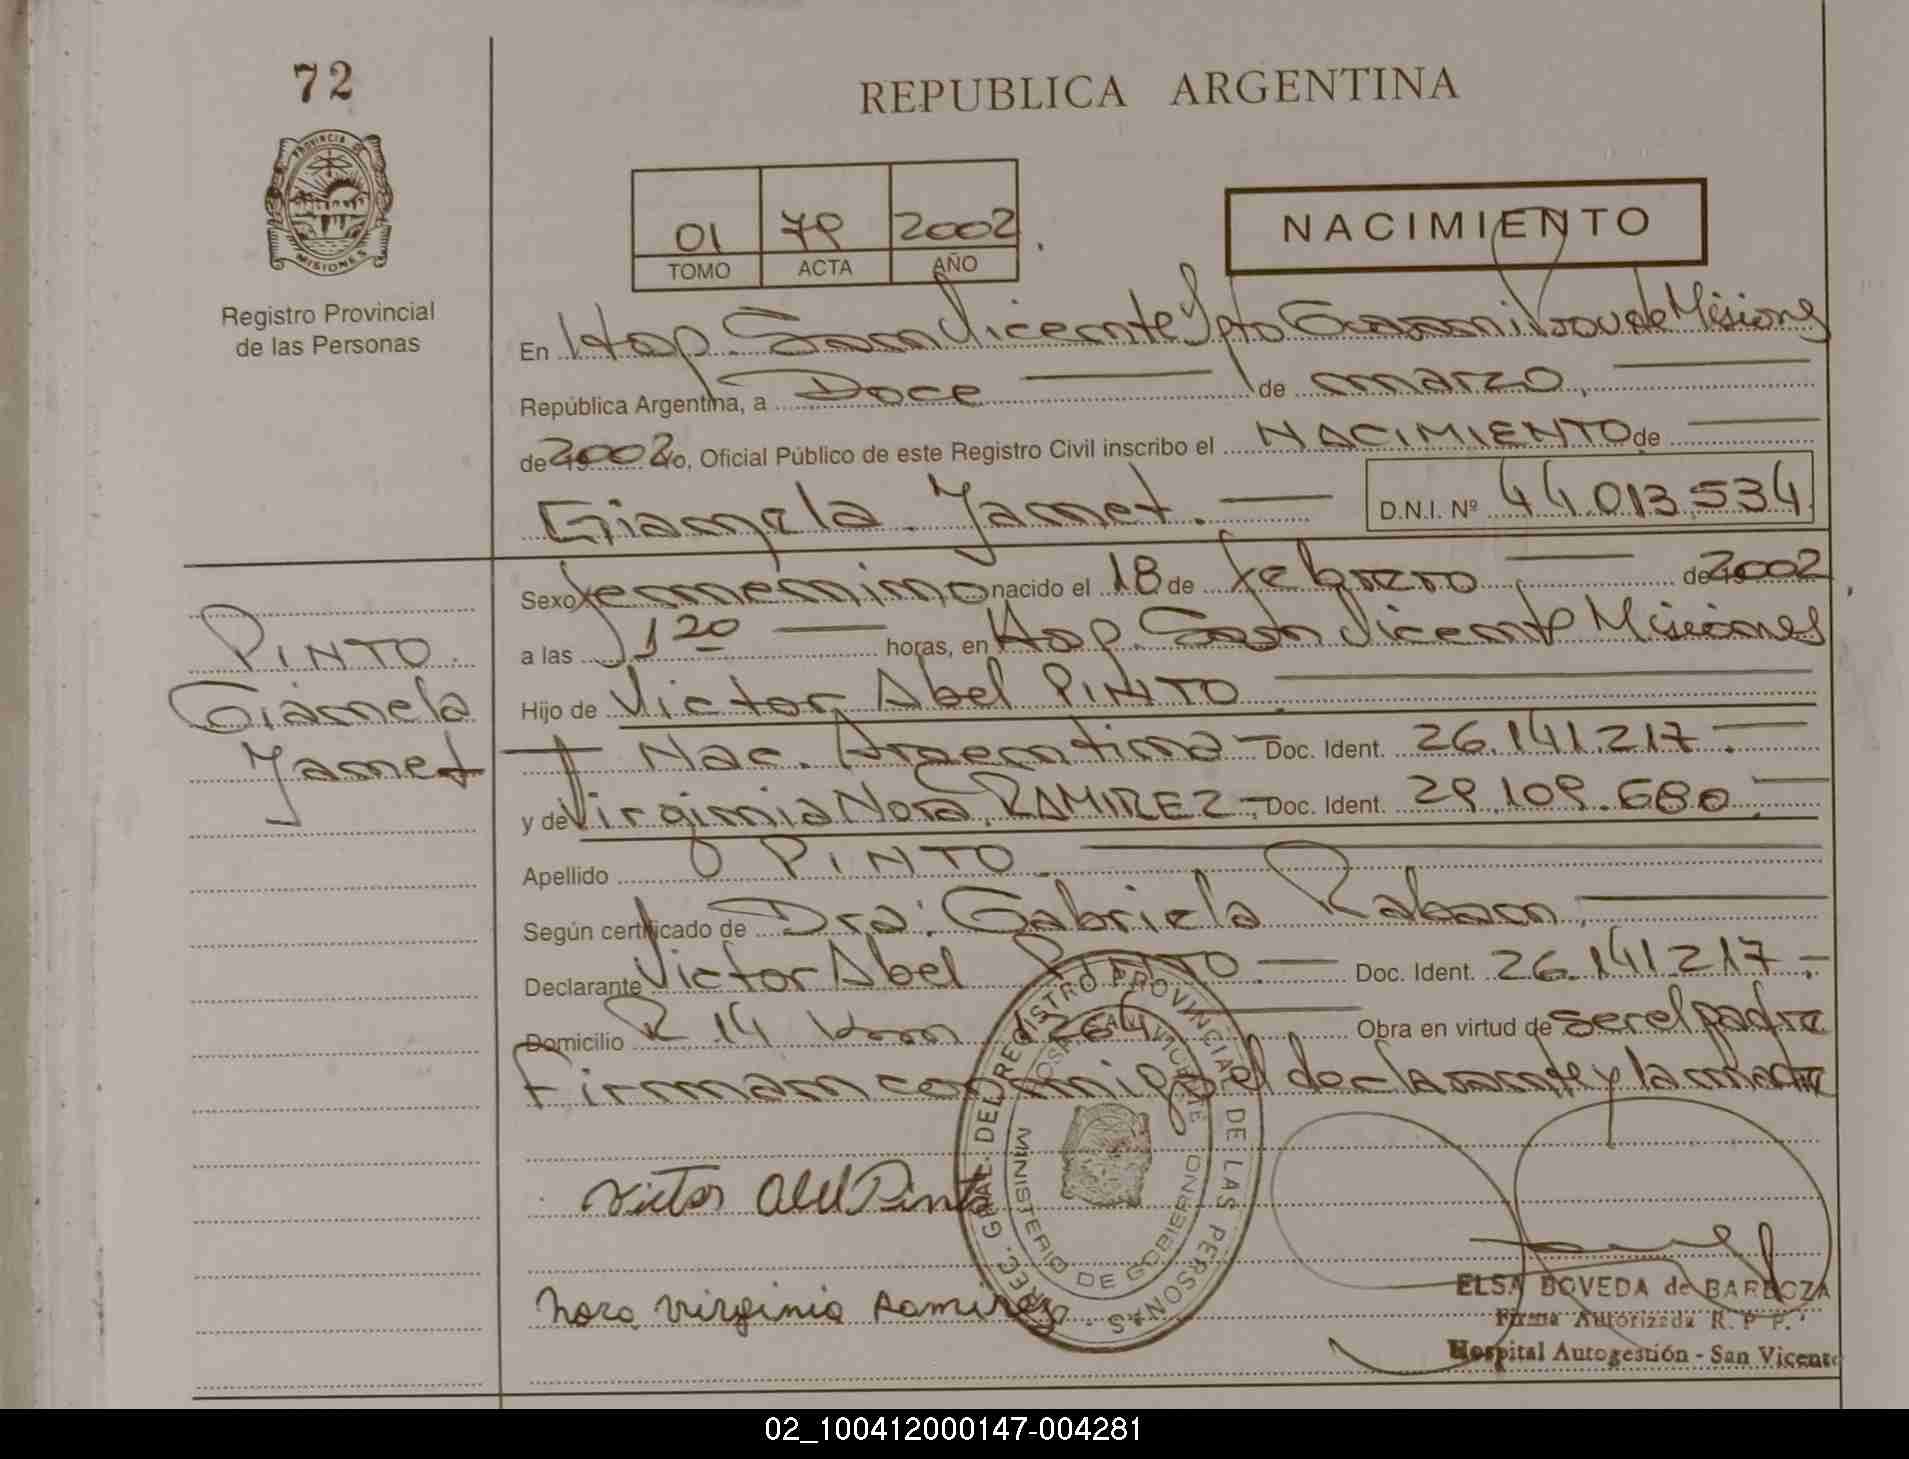 72
REPUBLICA ARGENTINA
PROVINCIA DE
MISIONES
Registro Provincial
de las Personas
01 79 2002
TOMO ACTA AÑO
NACIMIENTO
En Hop. San Vicente Dpto Guarani Prov de Misiones
República Argentina, a Doce de marzo,
de 2002 Yo, Oficial Público de este Registro Civil inscribo el NACIMIENTO de
Gianela Yanet. D.N.I. Nº 44.013.534
Sexo femenino nacido el 18 de febrero de 2002
a las 1 20 horas, en Hop. San Vicente Misiones
Hijo de Victor Abel PINTO
Nac. Argentina - Doc. Ident. 26.141.217.-
y de Virginia Nora, RAMIREZ - Doc. Ident. 29.109.680
Apellido PINTO
Según certificado de Dra: Gabriela
Declarante Victor Abel PINTO Doc. Ident. 26.141.217.-
Domicilio R 14 km 1264 Obra en virtud de ser el padre
Firman conmigo el declarante y la madre
PINTO
Gianela
Yanet
Victor Abel Pinto
Nora Virginia Ramirez
DIREC. GRAL. DEL REGISTRO PROVINCIAL DE LAS PERSONAS
HOSP. SAN VICENTE
MINISTERIO DE GOBIERNO
ELSA BOVEDA de BARBOZA
Firma Autorizada R. P. P.
Hospital Autogestión - San Vicente
02_100412000147-004281